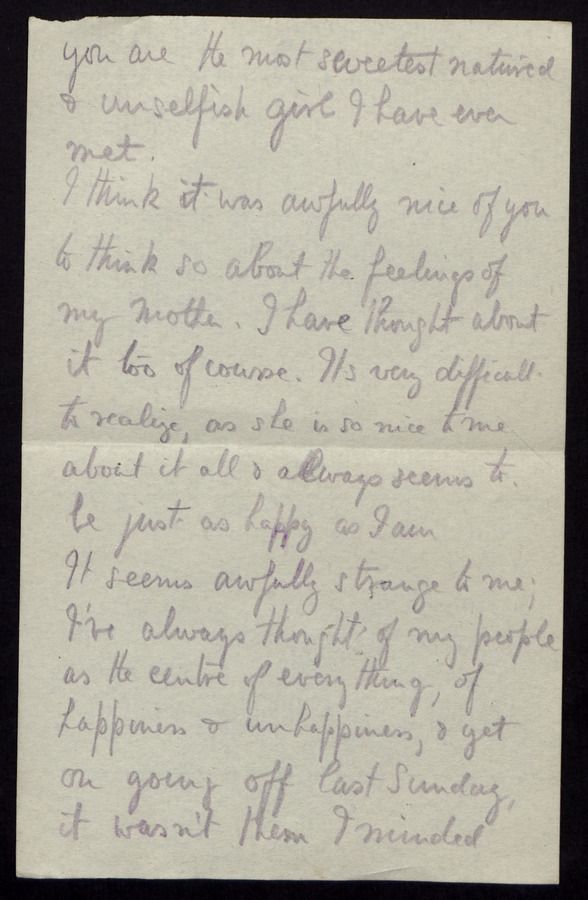 you are the most sweetest natured
& unselfish girl I have ever
met.
I think it was awfully nice of you
to think so about the feelings of
my Mother. I have thought about
it too of course. Its very difficult
to realize, as she is so nice to me
about it all & always seems to
be just as happy as I am
It seems awfully strange to me;
I've always thought of my people
as the centre of every thing, of
happiness & unhappiness, & yet
on going off last Sunday,
it wasn't them I minded